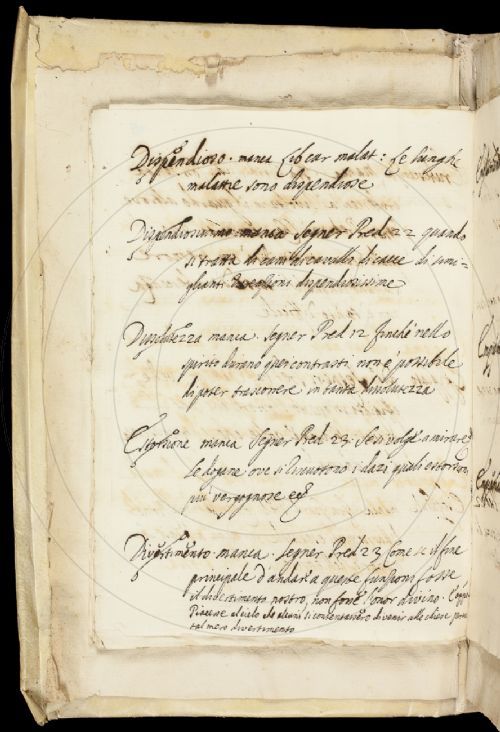 Dispendioso. manca Cibear malat: Le lunghe
malattie sono dispendiose
Dispendiosissimo manca Segner Pred 22 quando
si tratta di di cacce di simi=
glianti dispendiosissime
Dissolutezza manca. Segner Pred 12 finché nello
spirito durano quei contrasti non è possibile
di poter trascorrere in tanta dissolutezza
Estorsione manca Segner Pred 23. Se si volge a mirare
le dogane ove si riscuotono i dazi quali estorsioni
più vergognose
Divertimento manca. Segner Pred 23 Come se il fine
principale d'andare a queste funzioni fosse
il divertimento nostro, non fosse l'onor divino.
Piacesse al cielo che alcuni si contentassero di venir alle chiese per
tal mero divertimento